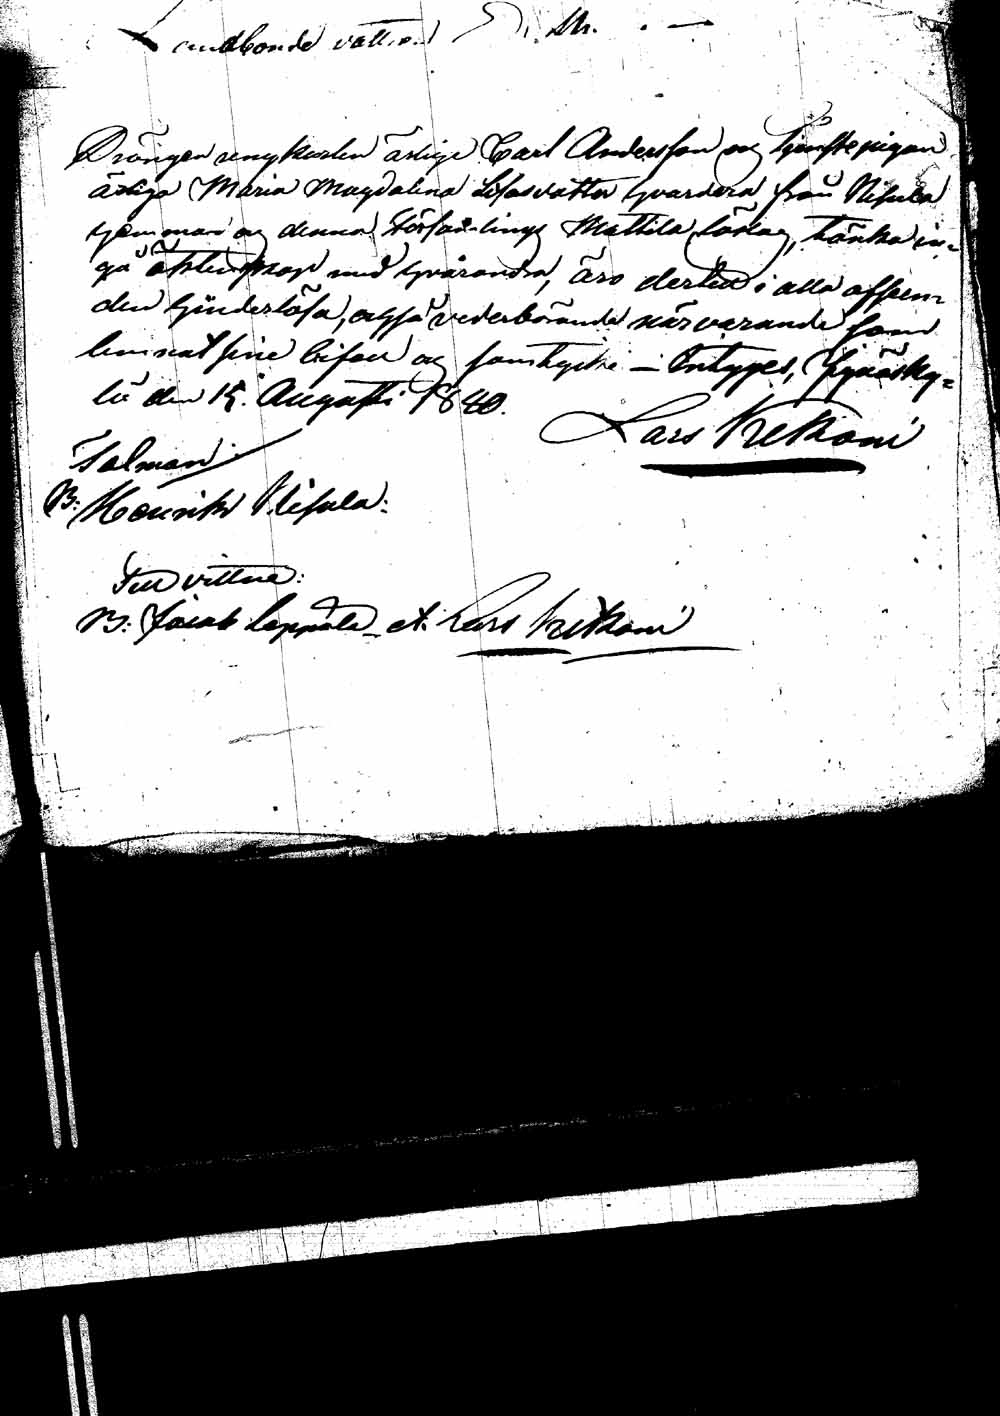 Drängen ungkarlen ärlige Carl Andersson och tjenstepigan
ärliga Maria Magdalena Lisasdotter hvardera från Nisula
hemman och denna Församlings Mattila löslag, tänka in-
gå äktenskap med hvarandra, äro dertill i alla afseen-
den hinderlösa, också vederbörande närvarande som
lemnat sine bifall och samtycke — Intyges, Jyväsky-
lä den 15. Augusti 1840.
Lars Ketkoni
Talman
B: Henrik Nisula:
Till vittne:
B: Jacob Leppälä et. Lars Ketkoni